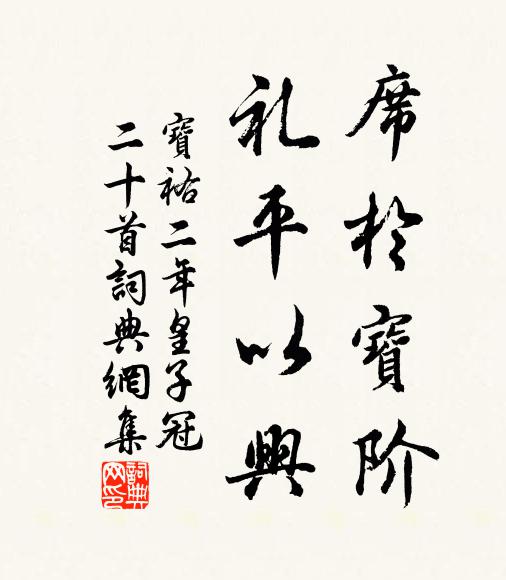 席於寶阶
礼平以興
寶祐二年皇子冠
二十首詞典網集
詞典网印